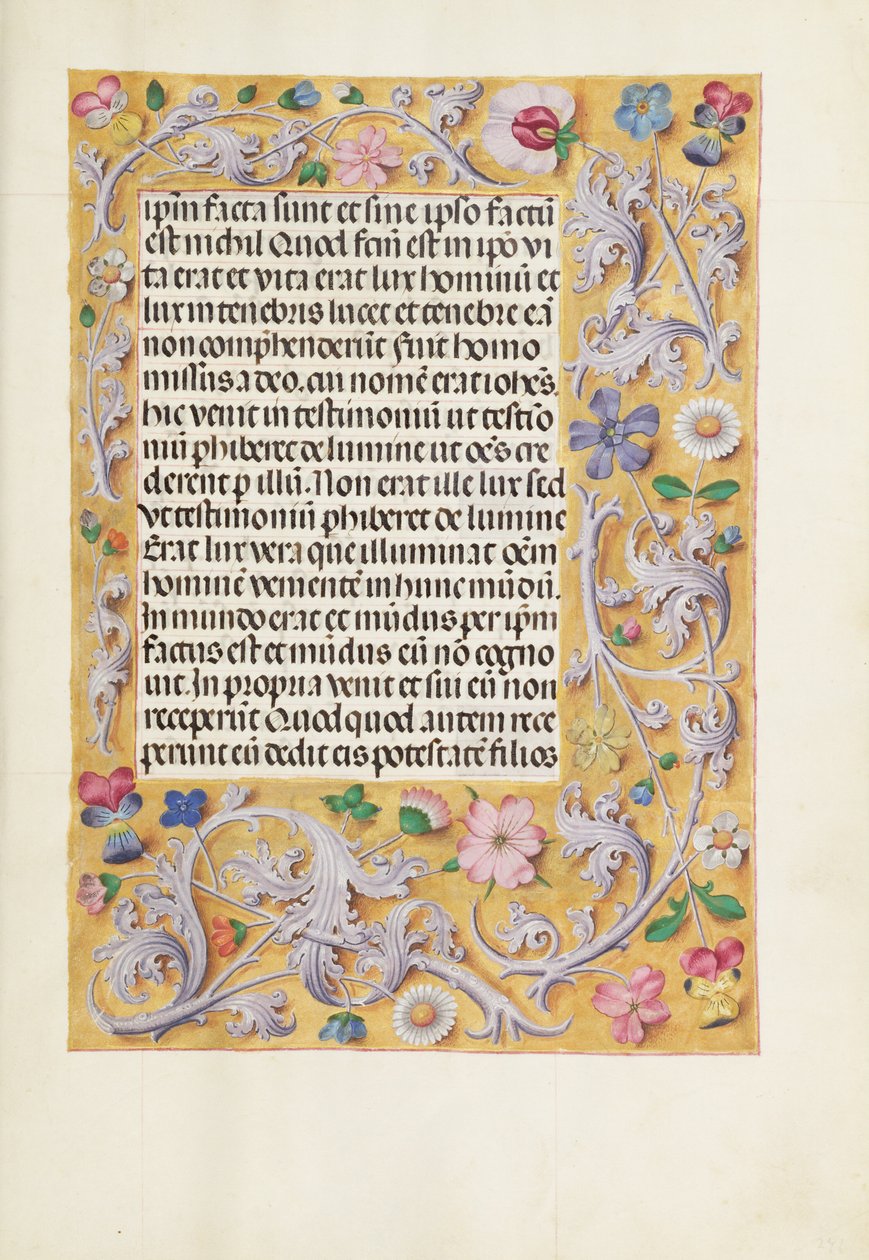 ip̄m facta sunt et sine ipso factū
est nichil Quod fc̄m est in ip̄o vi
ta erat et vita erat lux hominū et
lux in tenebris lucet et tenebre eā
non comp̄henderūt Fuit homo
missus a deo. cui nomē erat ioh̄es.
hic venit in testimoniū ut testīo
niū p̄hiberet de lumine ut oēs cre
derent p illū. Non erat ille lux sed
vt testimoniū p̄hiberet de lumine
Erat lux vera que illuminat oēm
hominē venientē in hunc mūdū.
In mundo erat et mūdus per ip̄m
factus est et mūdus eū nō cogno
uit. In propria venit et sui eū non
receperūt Quod quod autem rece
perunt eū dedit eis potestatē filios